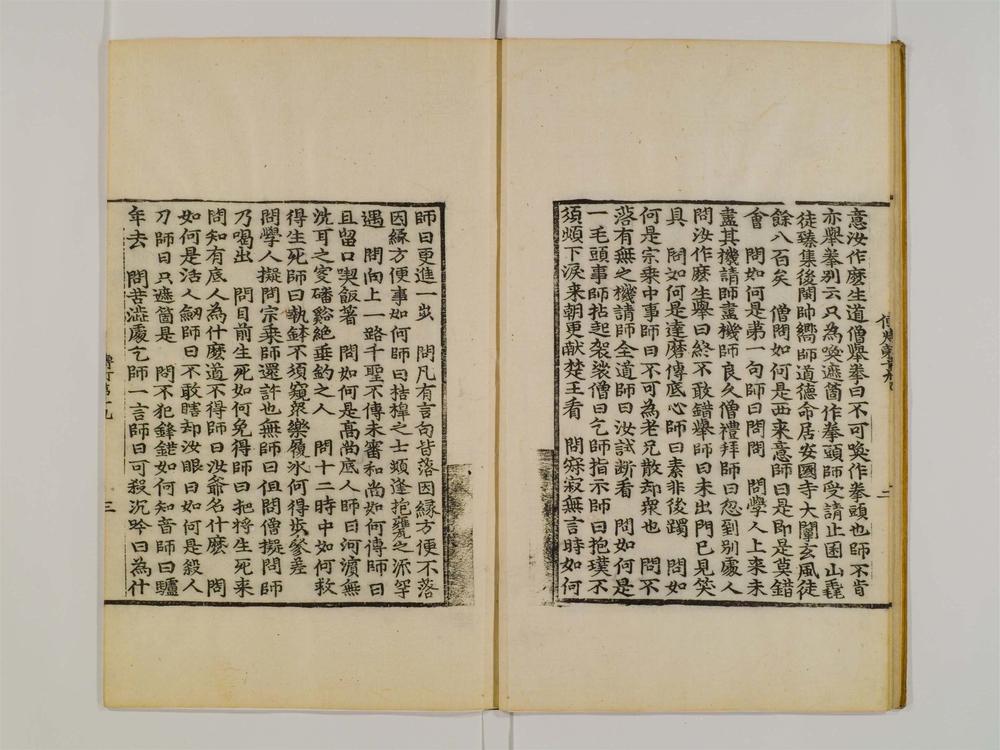 意汝作麽生道僧擧拳曰不可喚作拳頭也師不肯
亦擧拳別云只為喚遮箇作拳頭師受請止囷山毳
徒臻集後閩帥嚮師道德命居安國寺大闡玄風徒
餘八百矣 僧問如何是西來意師曰是即是莫錯
會 問如何是第一句師曰問問 問學人上來未
盡其機請師盡機師良久僧禮拜師曰忽到別處人
問汝作麽生擧曰終不敢錯擧師曰未出門已見笑
具 問如何是達磨傳底心師曰素非後躅 問如
何是宗乗中事師曰不可為老兄散却衆也 問不
落有無之機請師全道師曰汝試断看 問如何是
一毛頭事師拈起袈裟僧曰乞師指示師曰抱璞不
須頻下淚来朝更献楚王看 問寂寂無言時如何
師曰更進一歩 問凡有言句皆落因縁方便不落
因縁方便事如何師曰桔槹之士頻逢抱甕之派罕
遇 問向上一路千聖不傳未審和尚如何傳師曰
且留口喫飯著 問如何是高尚底人師曰河濵無
洗耳之叟磻谿絶垂釣之人 問十二時中如何救
得生死師曰執鉢不須窺衆樂履氷何得歩參差
問學人擬問宗乗師還許也無師曰但問僧擬問師
乃喝出 問目前生死如何免得師曰把将生死来
問知有底人為什麽道不得師曰汝爺名什麽 問
如何是活人劒師曰不敢瞎却汝眼曰如何是殺人
刀師曰只遮箇是 問不犯鋒鋩如何知音師曰驢
年去 問苦澁處乞師一言師曰可殺沉吟曰為什
三